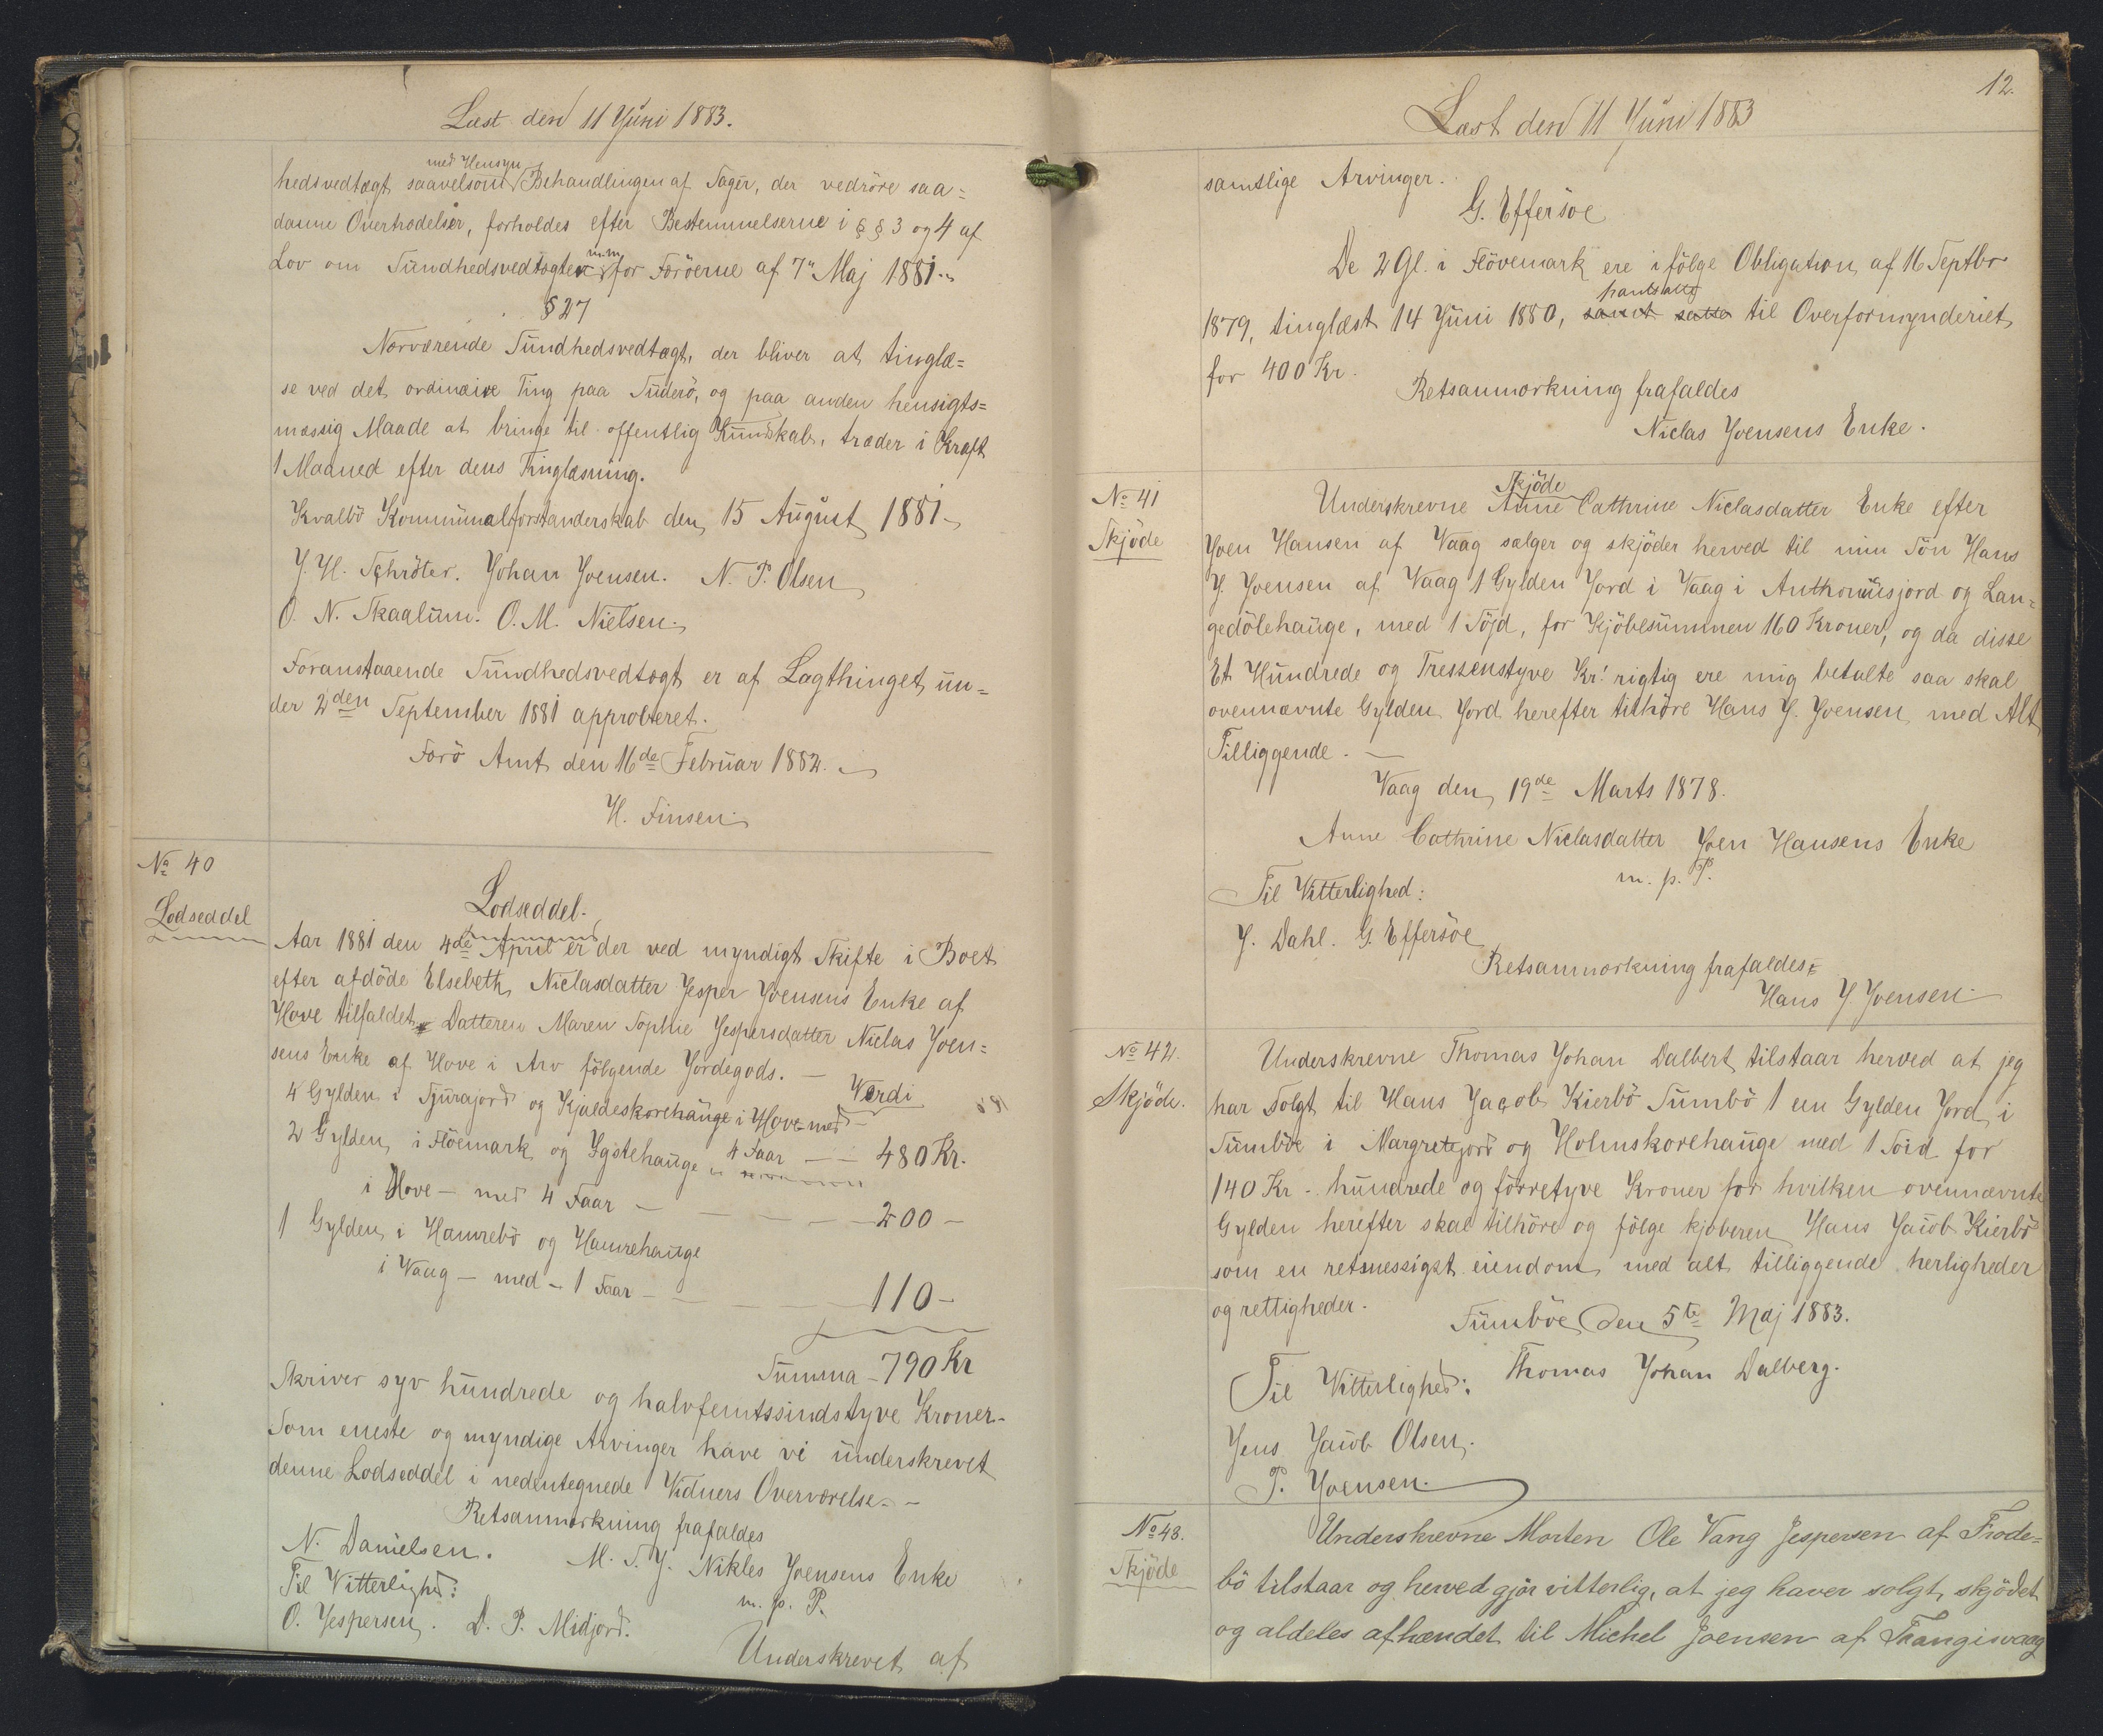 Læst den 11 Juni 1883.
med Hensyn
hedsvedtægt saavelsom Behandlingen af Sager, der vedröre saa=
danne Overtrædelser, forholdes efter Bestemmelserne i § § 3 og 4 af
m.m.
Lov om Sundhedsvedtægter for Færöerne af 7" Maj 1881.
§ 27
Nærværende Sundhedsvedtægt, der bliver at tinglæ=
se ved det ordinaire Ting paa Suderö, og paa anden hensigts=
mæssig Maade at bringe til offentlig Kundskab, træder i Kraft
1 Maaned efter dens Tinglæsning.
Kvalbö Kommunalforstanderskab den 15 August 1881
J. H. Schröter. Johan Joensen. N. P. Olsen
O. N. Skaalum. O. M. Nielsen.
Foranstaaende Sundhedsvedtægt er af Lagthinget un=
der 2den September 1881 approberet.
Færö Amt den 16de Februar 1882.
H. Finsen
No 40
Lodseddel
Lodseddel.
Aar 1881 den 4de April er der ved myndigt Skifte i Boet
efter afdöde Elsebeth Niclasdatter Jesper Joensens Enke af
Hove tilfaldet Datteren Maren Sophie Jespersdatter Niclas Joen=
sens Enke af Hove i Arv fölgende Jordegods. —
Værdi
4 Gylden i Tjurajord og Kjældeskorehauge i Hove med
4 Faar — — 480 Kr.
2 Gylden i Flöemark og Ygstehauge
i Hove — med 4 Faar — — — — 200 —
1 Gylden i Hamrebö og Hamrehauge
i Waag — med — 1 Faar — — — — 110 —
Summa — 790 Kr
Skriver syv hundrede og halvfemtssindstyve Kroner.
Som eneste og myndige Arvinger have vi underskrevet
denne Lodseddel i nedentegnede Vidners Overværelse. —
Retsanmærkning frafaldes
N. Danielsen. M. S. J. Nikles Joensens Enke
m. p. P.
Til Vitterlighed:
O. Jespersen. D. P. Midjord.
Underskrevet af
12.
Læst den 11 Juni 1883
samtlige Arvinger.
G. Effersöe
De 2 Gl. i Flövemark ere ifölge Obligation af 16 Septbr
pantsatte
1879, tinglæst 14 Juni 1880, samt satte til Overformynderiet
for 400 Kr.
Retsanmærkning frafaldes
Niclas Joensens Enke.
No 41
Skjöde
Skjöde
Underskrevne Anne Cathrine Niclasdatter Enke efter
Joen Hansen af Waag sælger og skjöder herved til min Sön Hans
J. Joensen af Waag 1 Gylden Jord i Vaag i Anthoniusjord og Lan=
gedölehauge, med 1 Söjd, for Kjöbesummen 160 Kroner, og da disse
Et Hundrede og Tressenstyve Kr. rigtig ere mig betalte saa skal
ovennævnte Gylden Jord herefter tilhöre Hans J. Joensen med Alt
Tilliggende. —
Vaag den 19de Marts 1878.
Anne Cathrine Niclasdatter Joen Hansens Enke
m. p. P.
Til Vitterlighed:
J. Dahl. G. Effersöe
Retsanmærkning frafaldes
Hans J. Joensen
No 42.
Skjöde.
Underskrevne Thomas Johan Dalbert tilstaar herved at jeg
har Solgt til Hans Jacob Kierbö Sumbö 1 een Gylden Jord i
Sumböe i Margretejord og Holmskorehauge med 1 Soid for
140 Kr — hundrede og förretyve Kroner for hvilken ovennævnte
Gylden herefter skal tilhöre og fölge kjöberen Hans Jacob Kierbö
som en retmessigst eiendom med alt tilliggende herligheder
og rettigheder.
Sumböe den 5te Maj 1883.
Thomas Johan Dalberg.
Til Vitterlighed:
Jens Jacob Olsen.
P. Joensen.
No 43.
Skjöde
Underskrevne Morten Ole Vang Jespersen af Frode=
bö tilstaar og herved gjör vitterlig, at jeg haver solgt, skjödet
og aldeles afhændet til Michel Joensen af Trangisvaag